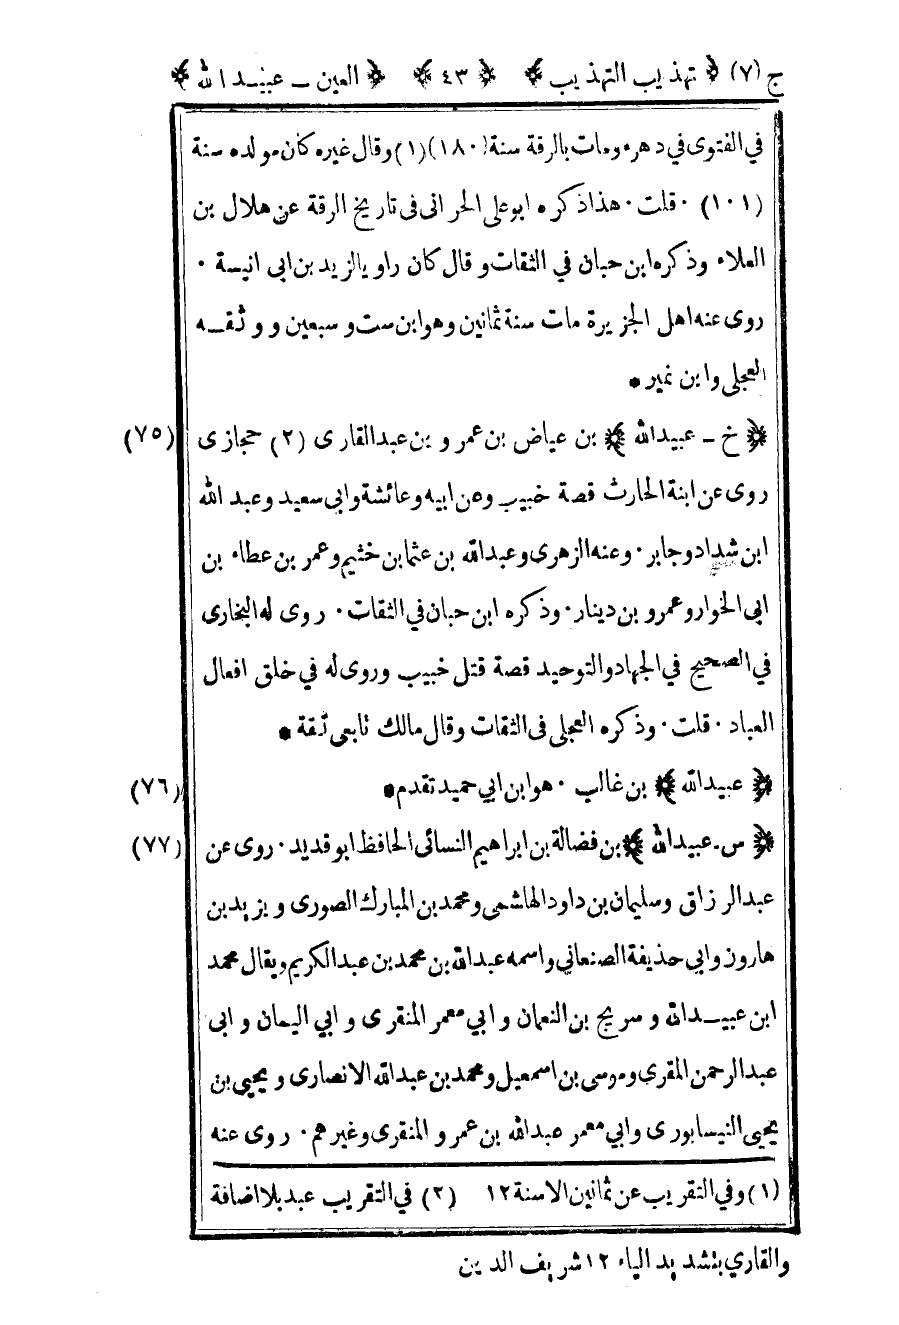 ج (٧) ﴿ تهذيب التهذيب ﴾ ﴿ ٤٣ ﴾ ﴿ العين ـ عبيد الله ﴾
في الفتوى في دهره ومات بالرقة سنة (١٨٠)(١) وقال غيره كان مولده سنة
(١٠١) ٠ قلت ٠ هذا ذكره ابو على الحرانى فى تاريخ الرقة عن هلال بن
العلاء وذكره ابن حبان في الثقات وقال كان راويا لزيد بن ابى انيسة ٠
روى عنه اهل الجزيرة مات سنة ثمانين وهو ابن ست وسبعين ووثقه
العجلى وابن نمير *
(٧٥) ﴿ خ ـ عبيد الله ﴾ بن عياض بن عمرو بن عبد القارى (٢) حجازى
روى عن ابنة الحارث قصة خبيب وعن ابيه وعائشة وابى سعيد وعبد الله
ابن شداد وجابر ٠ وعنه الزهرى وعبد الله بن عثمان بن خثيم وعمر بن عطاء بن
ابى الخوار وعمرو بن دينار ٠ وذكره ابن حبان في الثقات ٠ روى له البخارى
في الصحيح في الجهاد والتوحيد قصة قتل خبيب وروى له في خلق افعال
العباد ٠ قلت ٠ وذكره العجلى فى الثقات وقال مالك تابعى ثقة *
(٧٦) ﴿ عبيد الله ﴾ بن غالب ٠ هو ابن ابي حميد تقدم *
(٧٧) ﴿ س ـ عبيد الله ﴾ بن فضالة بن ابراهيم النسائى الحافظ ابو قديد ٠ روى عن
عبد الرزاق وسليمان بن داود الهاشمى ومحمد بن المبارك الصورى ويزيد بن
هارون وابي حذيفة الصنعاني واسمه عبد الله بن محمد بن عبد الكريم ويقال محمد
ابن عبيد الله وسريج بن النعمان وابي معمر المنقرى وابي اليمان وابى
عبد الرحمن المقرى وموسى بن اسمعيل ومحمد بن عبد الله الانصارى ويحيى بن
يحيى النيسابورى وابي معمر عبد الله بن عمرو المنقرى وغيرهم ٠ روى عنه
(١) وفي التقريب عن ثمانين الاسنة ١٢ (٢) في التقريب عبد بلا اضافة
والقاري بتشديد الياء ١٢ شريف الدين